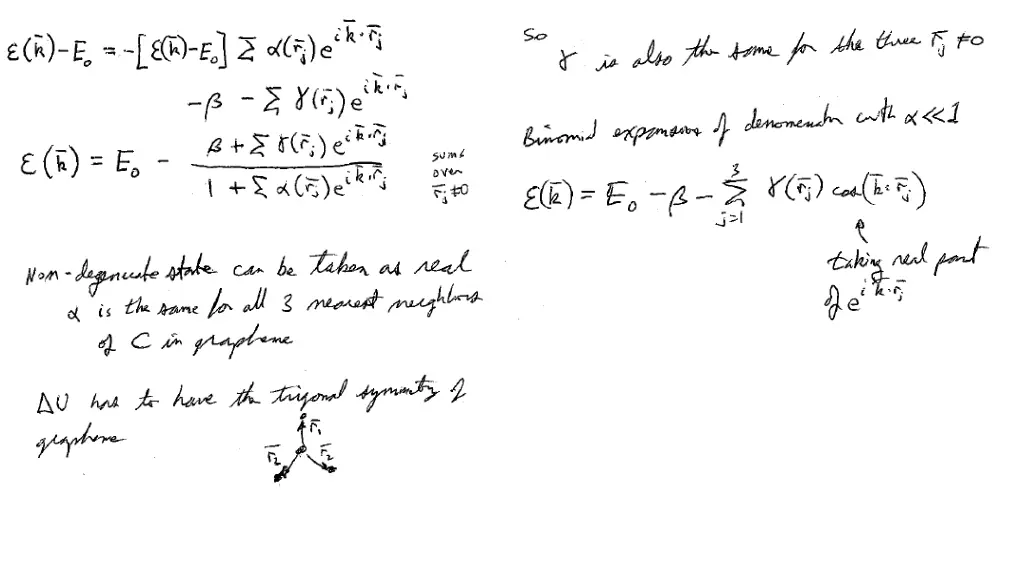 ε(k̄)-E₀ = -[ε(k̄)-E₀] Σ α(r̄ⱼ)e^{i k̄·r̄ⱼ}
-β - Σ γ(r̄ⱼ)e^{i k̄·r̄ⱼ}
ε(k̄) = E₀ - \frac{β + Σ γ(r̄ⱼ)e^{i k̄·r̄ⱼ}}{1 + Σ α(r̄ⱼ)e^{i k̄·r̄ⱼ}}
sums
over
r̄ⱼ≠0
Non-degenerate state can be taken as real
α is the same for all 3 nearest neighbors
of C in graphene
ΔU has to have the trigonal symmetry of
graphene
r̄₁
r̄₂ r̄₂
So
γ is also the same for the three r̄ⱼ ≠0
Binomial expansion of denomenator with α<<1
ε(k̄) = E₀ -β - Σ_{j=1}^{3} γ(r̄ⱼ) cos(k̄·r̄ⱼ)
taking real part
of e^{i k̄·r̄ⱼ}